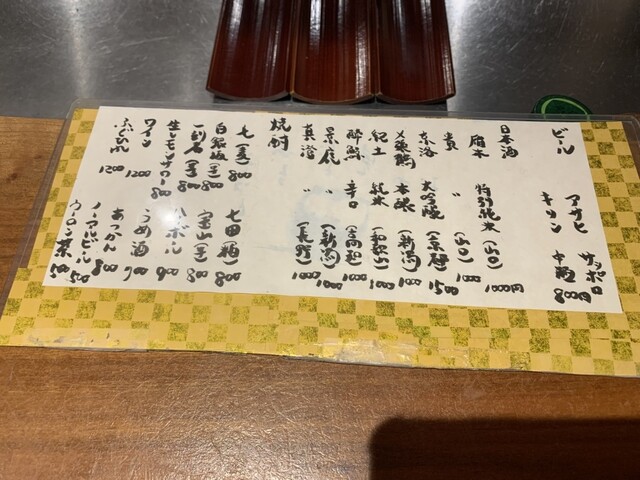 ビール アサヒ キリン サッポロ 中瓶 800円
日本酒
雁木 特別純米 (山口) 1000円
貴 〃 (山口) 1000
大吟醸 (京都) 1500
〆張鶴 本醸 (新潟) 1000
紀土 純米 (和歌山) 1000
酔鯨 辛口 (高知) 1000
景虎 〃 (新潟) 1000
真澄 〃 (長野) 1000
焼酎
七(麦) 800 七田(粕) 800
白銀坂(芋) 800 宝山(芋) 800
一刻者(芋) 800 ハイボール 900
生レモンサワー 800 うめ酒 900
ワイン 1200 あつかん 800
ふぐひれ 1200 ノーアルビール 500
ウーロン茶 500